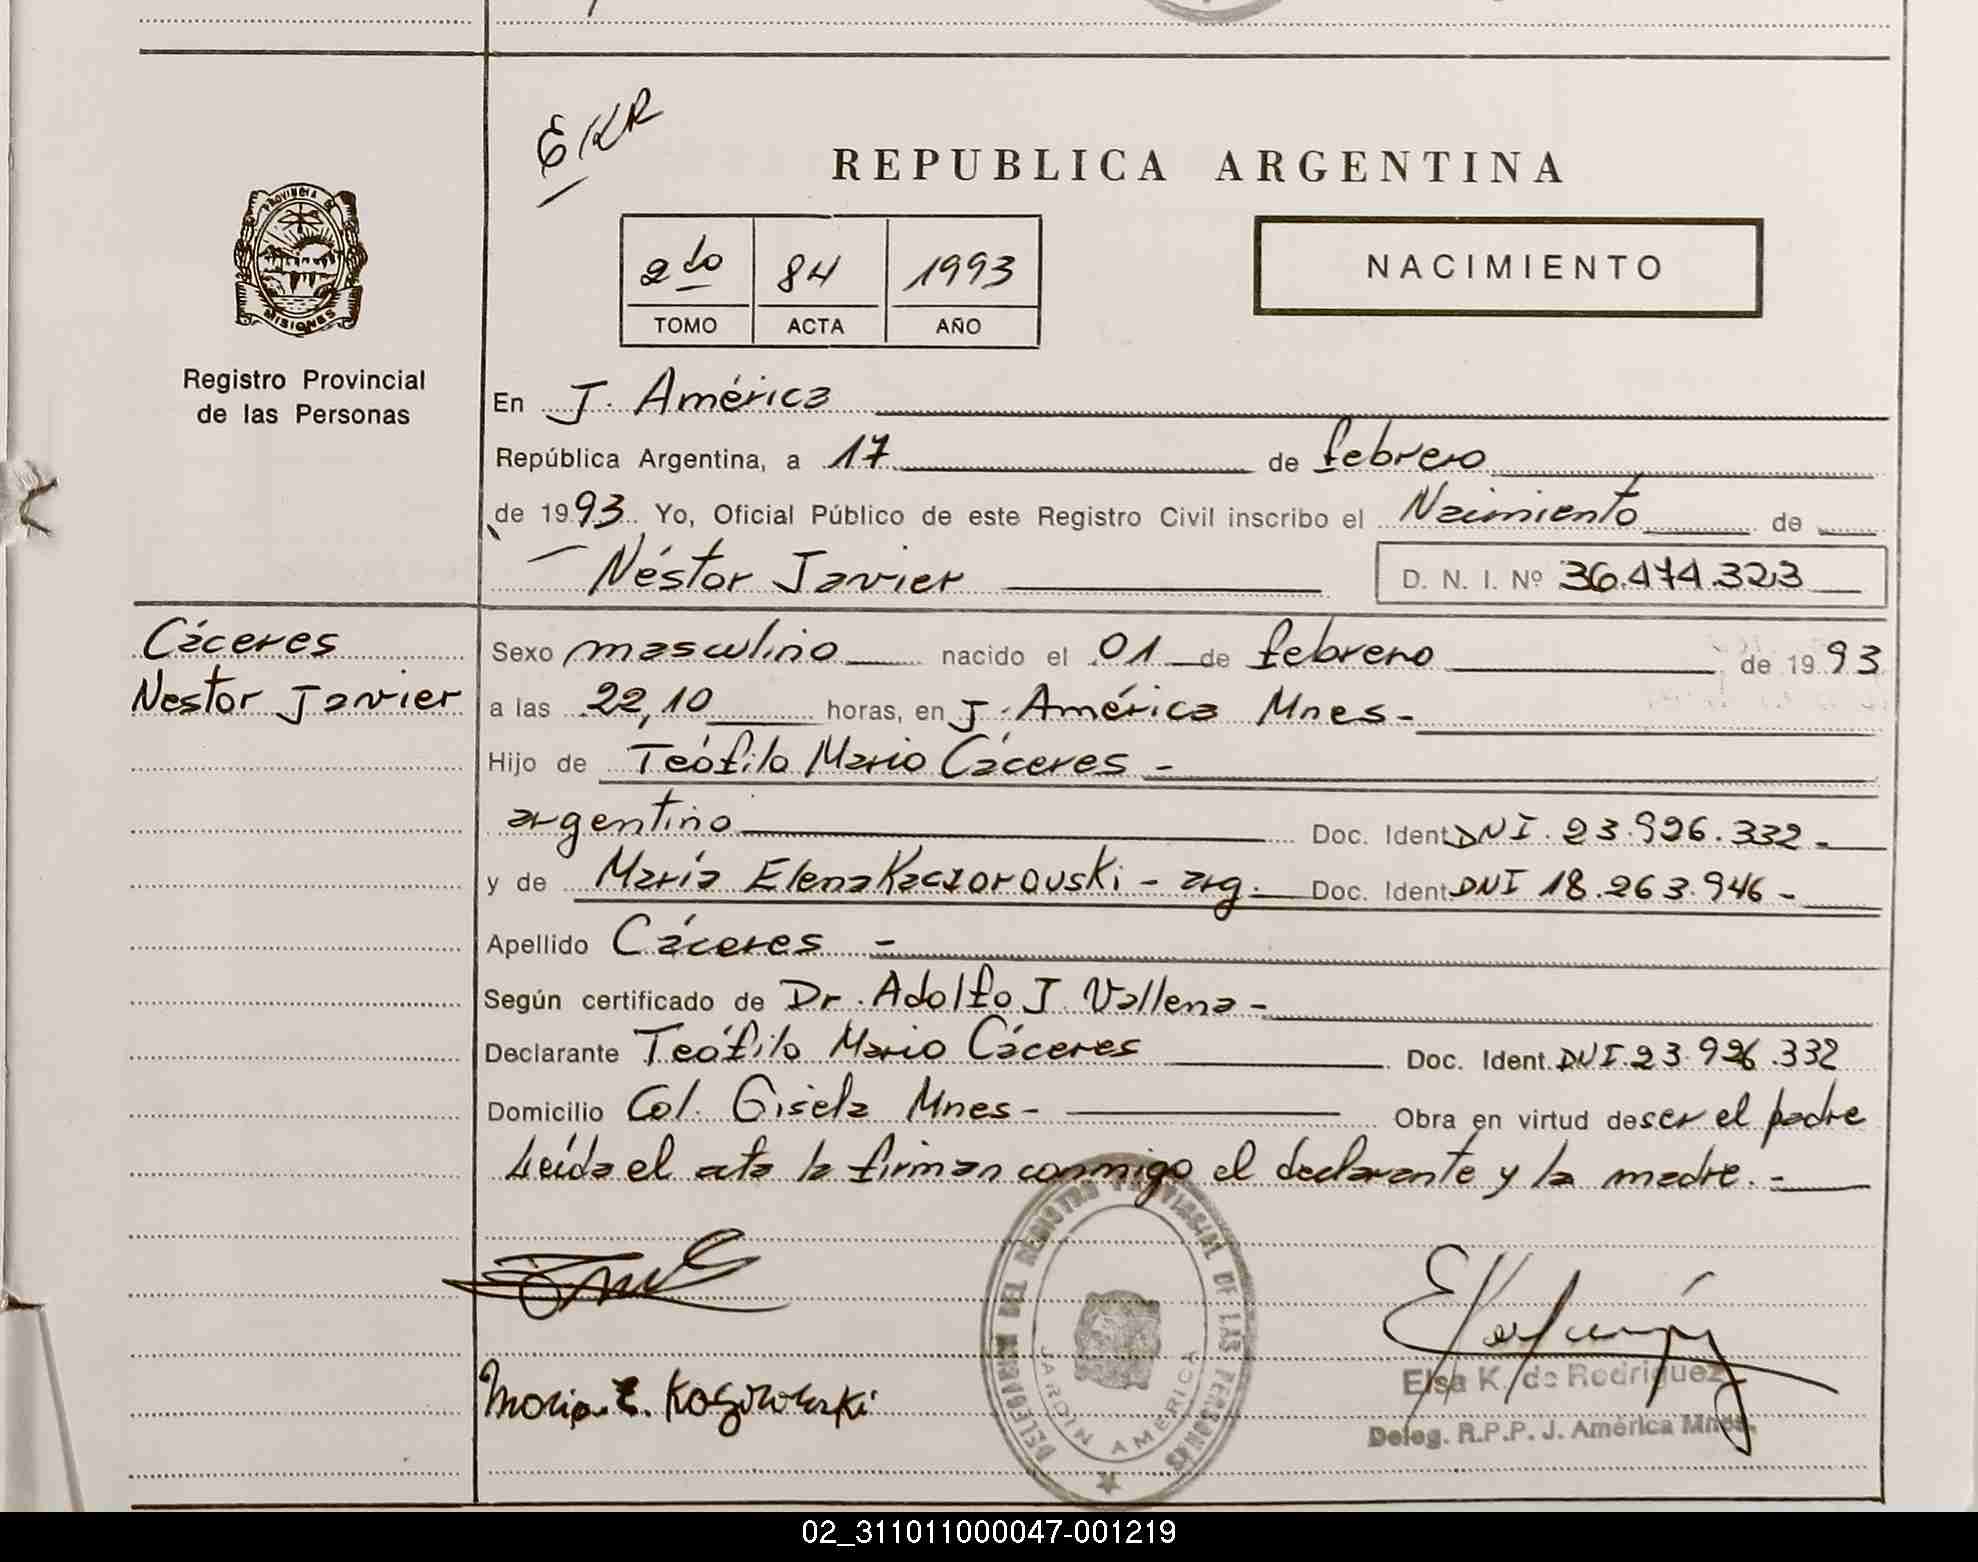 EKR
REPUBLICA ARGENTINA
PROVINCIA DE
MISIONES
2do 84 1993
TOMO ACTA AÑO
NACIMIENTO
Registro Provincial
de las Personas
En J. América
República Argentina, a 17 de febrero
de 1993 Yo, Oficial Público de este Registro Civil inscribo el Nacimiento de
Néstor Javier D. N. I. Nº 36.474.323
Cáceres
Nestor Javier
Sexo masculino nacido el 01 de febrero de 1993
a las 22,10 horas, en J. América Mnes-
Hijo de Teófilo Mario Cáceres -
argentino Doc. Ident DNI. 23.926.332-
y de María Elena Kaczorouski - arg. Doc. Ident DNI 18.263.946-
Apellido Cáceres -
Según certificado de Dr. Adolfo J. Vallena-
Declarante Teófilo Mario Cáceres Doc. Ident. DNI.23.926.332
Domicilio Col. Gisela Mnes- Obra en virtud de ser el padre
Leída el acta la firman conmigo el declarante y la madre.-
DELEGACION DEL REGISTRO PROVINCIAL DE LAS PERSONAS
JARDIN AMERICA
Maria E.
Elsa K. de Rodriguez
Deleg. R.P.P. J. América Mnes.
02_311011000047-001219